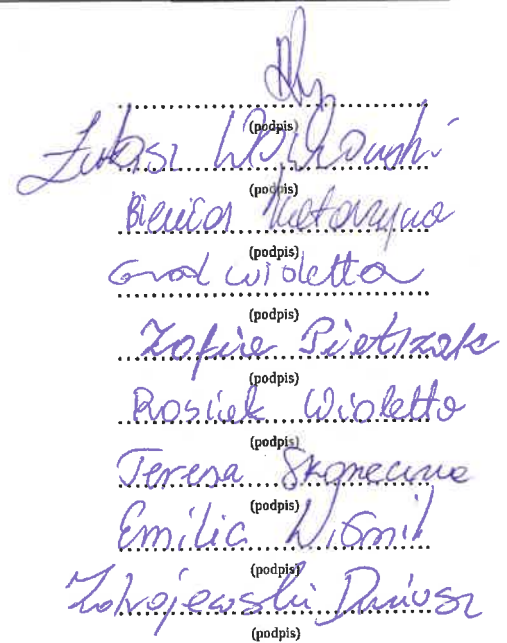 (podpis)
Łukasz
(podpis)
Bienias Katarzyna
(podpis)
Grad Wioletta
(podpis)
Zofia Pietrzak
(podpis)
Rosiek Wioletta
(podpis)
Teresa Skoneczna
(podpis)
Emilia
(podpis)
Zakrojewski Dariusz
(podpis)